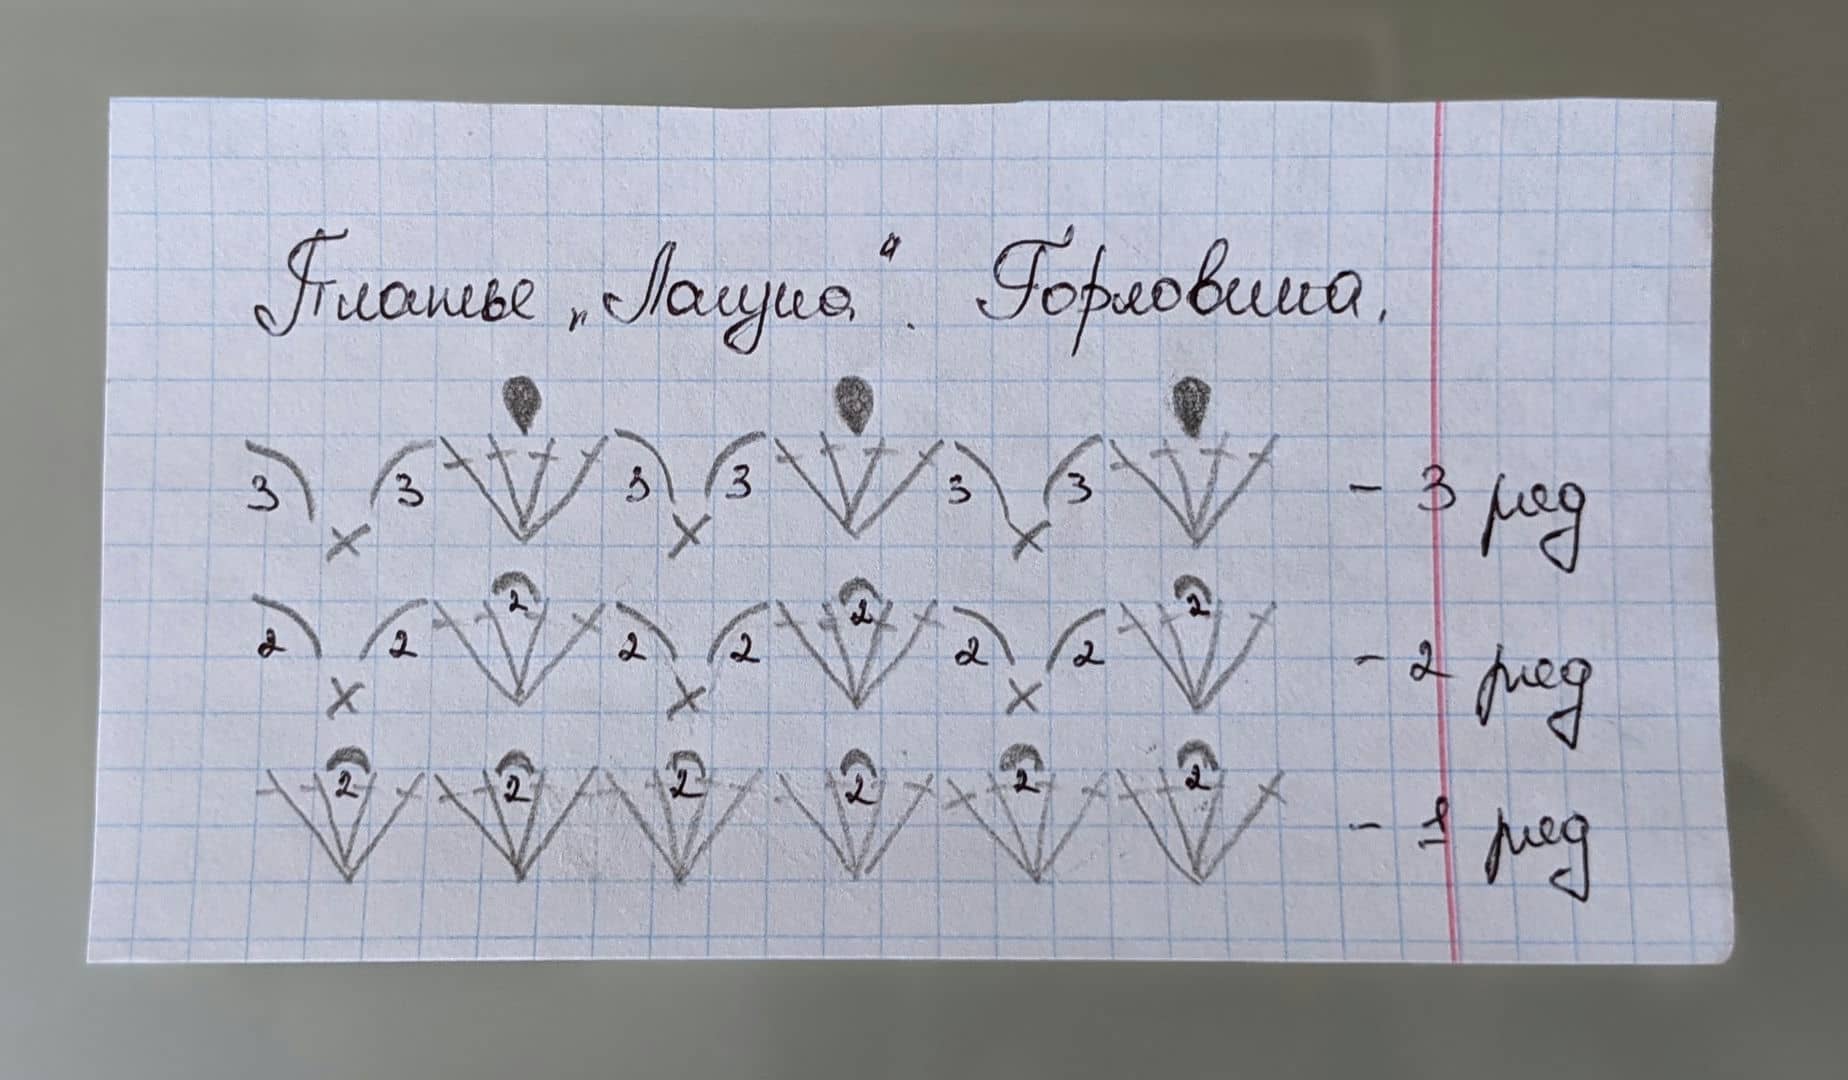 Платье „Лагуна“. Горловина.
3 3 3 3 3 3 - 3 ряд
2 2 2 2 2 2 2 2 2 - 2 ряд
2 2 2 2 2 2 - 1 ряд